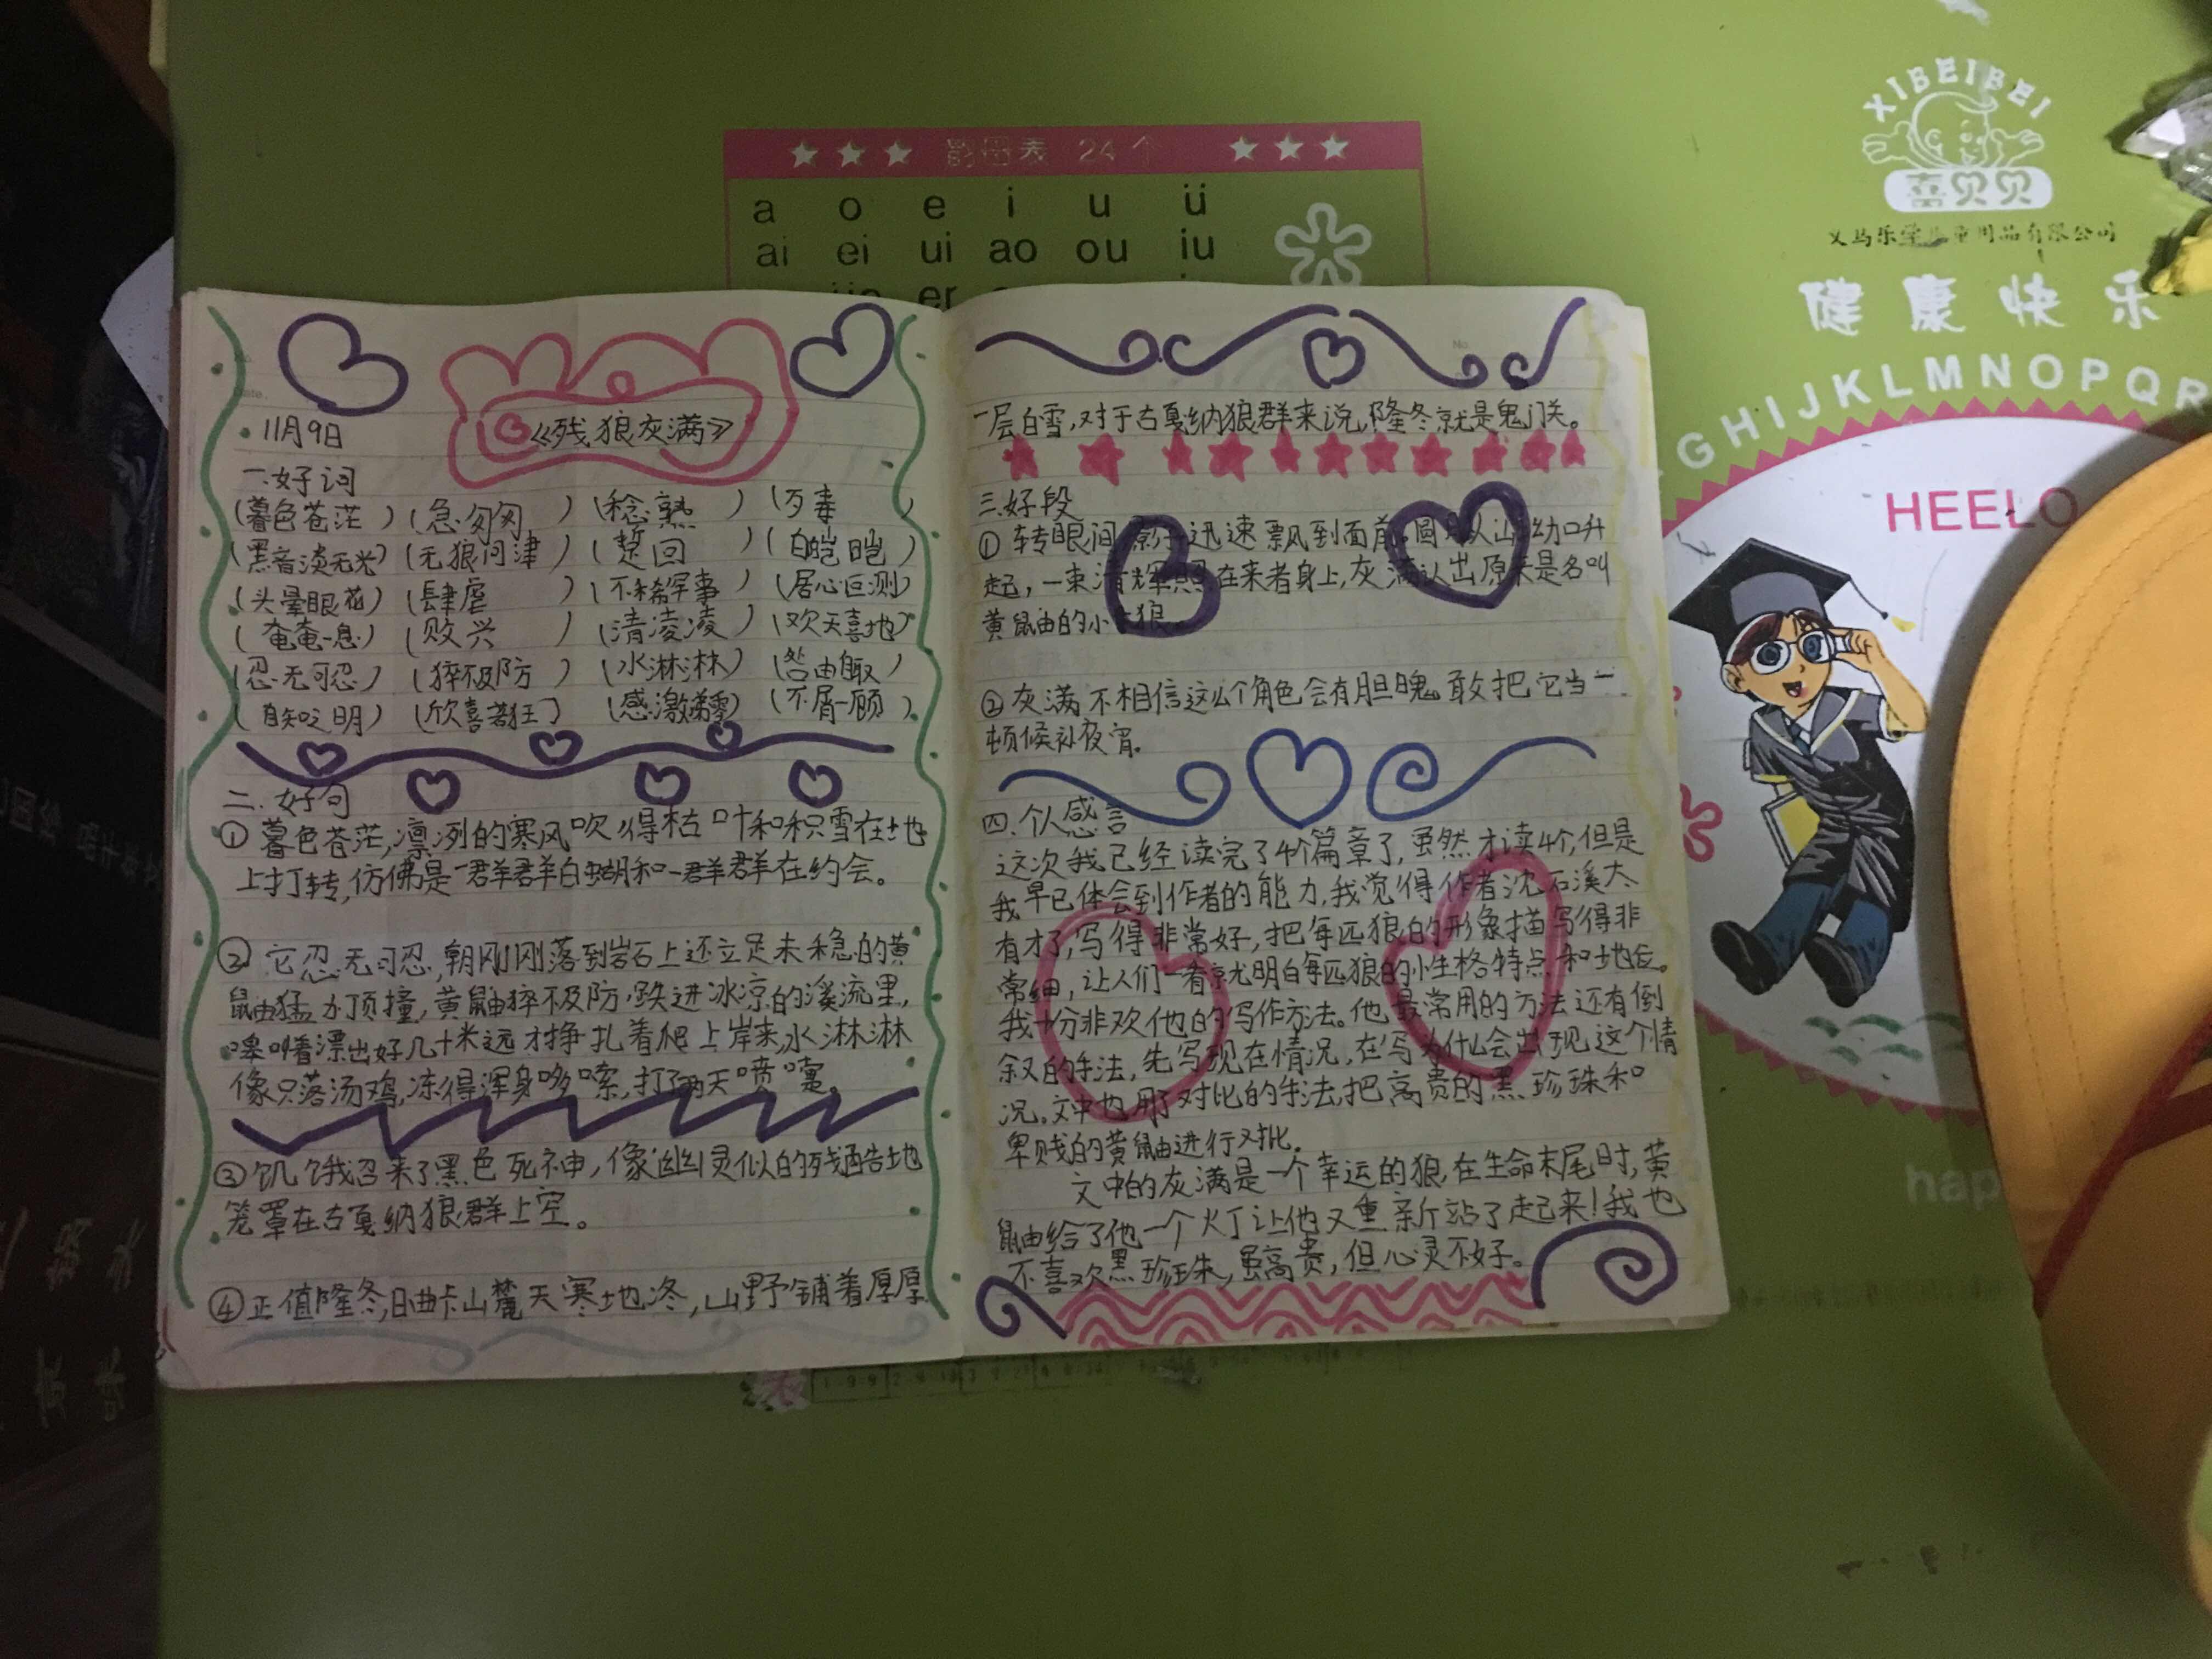 ★★★ 韵母表 24个 ★★★
a o e i u ü
ai ei ui ao ou iu
er
XIBEIBEI
喜贝贝
健康快乐
GHIJKLMNOPQR
HEELO
hap
11月9日
《残狼灰满》
一.好词
(暮色苍茫) (急匆匆) (稔熟) (歹毒)
(黑音淡无光) (无狼问津) (踅回) (皑皑)
(头晕眼花) (肆虐) (不稀罕事) (居心叵测)
(奄奄一息) (败兴) (清凌凌) (欢天喜地)
(忍无可忍) (猝不及防) (水淋淋) (咎由自取)
(自知之明) (欣喜若狂) (感激涕零) (不屑一顾)
二.好句
①暮色苍茫,凛冽的寒风吹得枯叶和积雪在地
上打转,仿佛是一群群白蝴和一群群在约会。
②它忍无可忍,朝刚刚落到岩石上还立足未稳的黄
鼬猛力顶撞,黄鼬猝不及防,跌进冰凉的溪流里,
嗥叫着漂出好几十米远才挣扎着爬上岸来,水淋淋
像只落汤鸡,冻得浑身哆嗦,打了两天喷嚏。
③饥饿召来了黑色死神,像幽灵似的残酷地
笼罩在古戛纳狼群上空。
④正值隆冬,日曲卡山麓天寒地冻,山野铺着厚厚
一层白雪,对于古戛纳狼群来说,隆冬就是鬼门关。
三.好段
①转眼间,影子迅速飘到面前。圆月从山坳口升
起,一束清辉照在来者身上,灰满认出原来是名叫
黄鼬的小母狼。
②灰满不相信这么个角色会有胆魄敢把它当一
顿候补夜宵。
四.个人感言
这次我已经读完了4个篇章了,虽然才读4个,但是
我早已体会到作者的能力,我觉得作者沈石溪太
有才了,写得非常好,把每匹狼的形象描写得非
常细,让人们一看就明白每匹狼的性格特点和地位。
我十分非欢他的写作方法。他最常用的方法还有倒
叙的手法,先写现在情况,在写为什么会出现这个情
况。文中也用了对比的手法,把高贵的黑珍珠和
卑贱的黄鼬进行对批。
文中的灰满是一个幸运的狼,在生命末尾时,黄
鼬给了他一个火丁让他又重新站了起来!我也
不喜欢黑珍珠,虽高贵,但心灵不好。